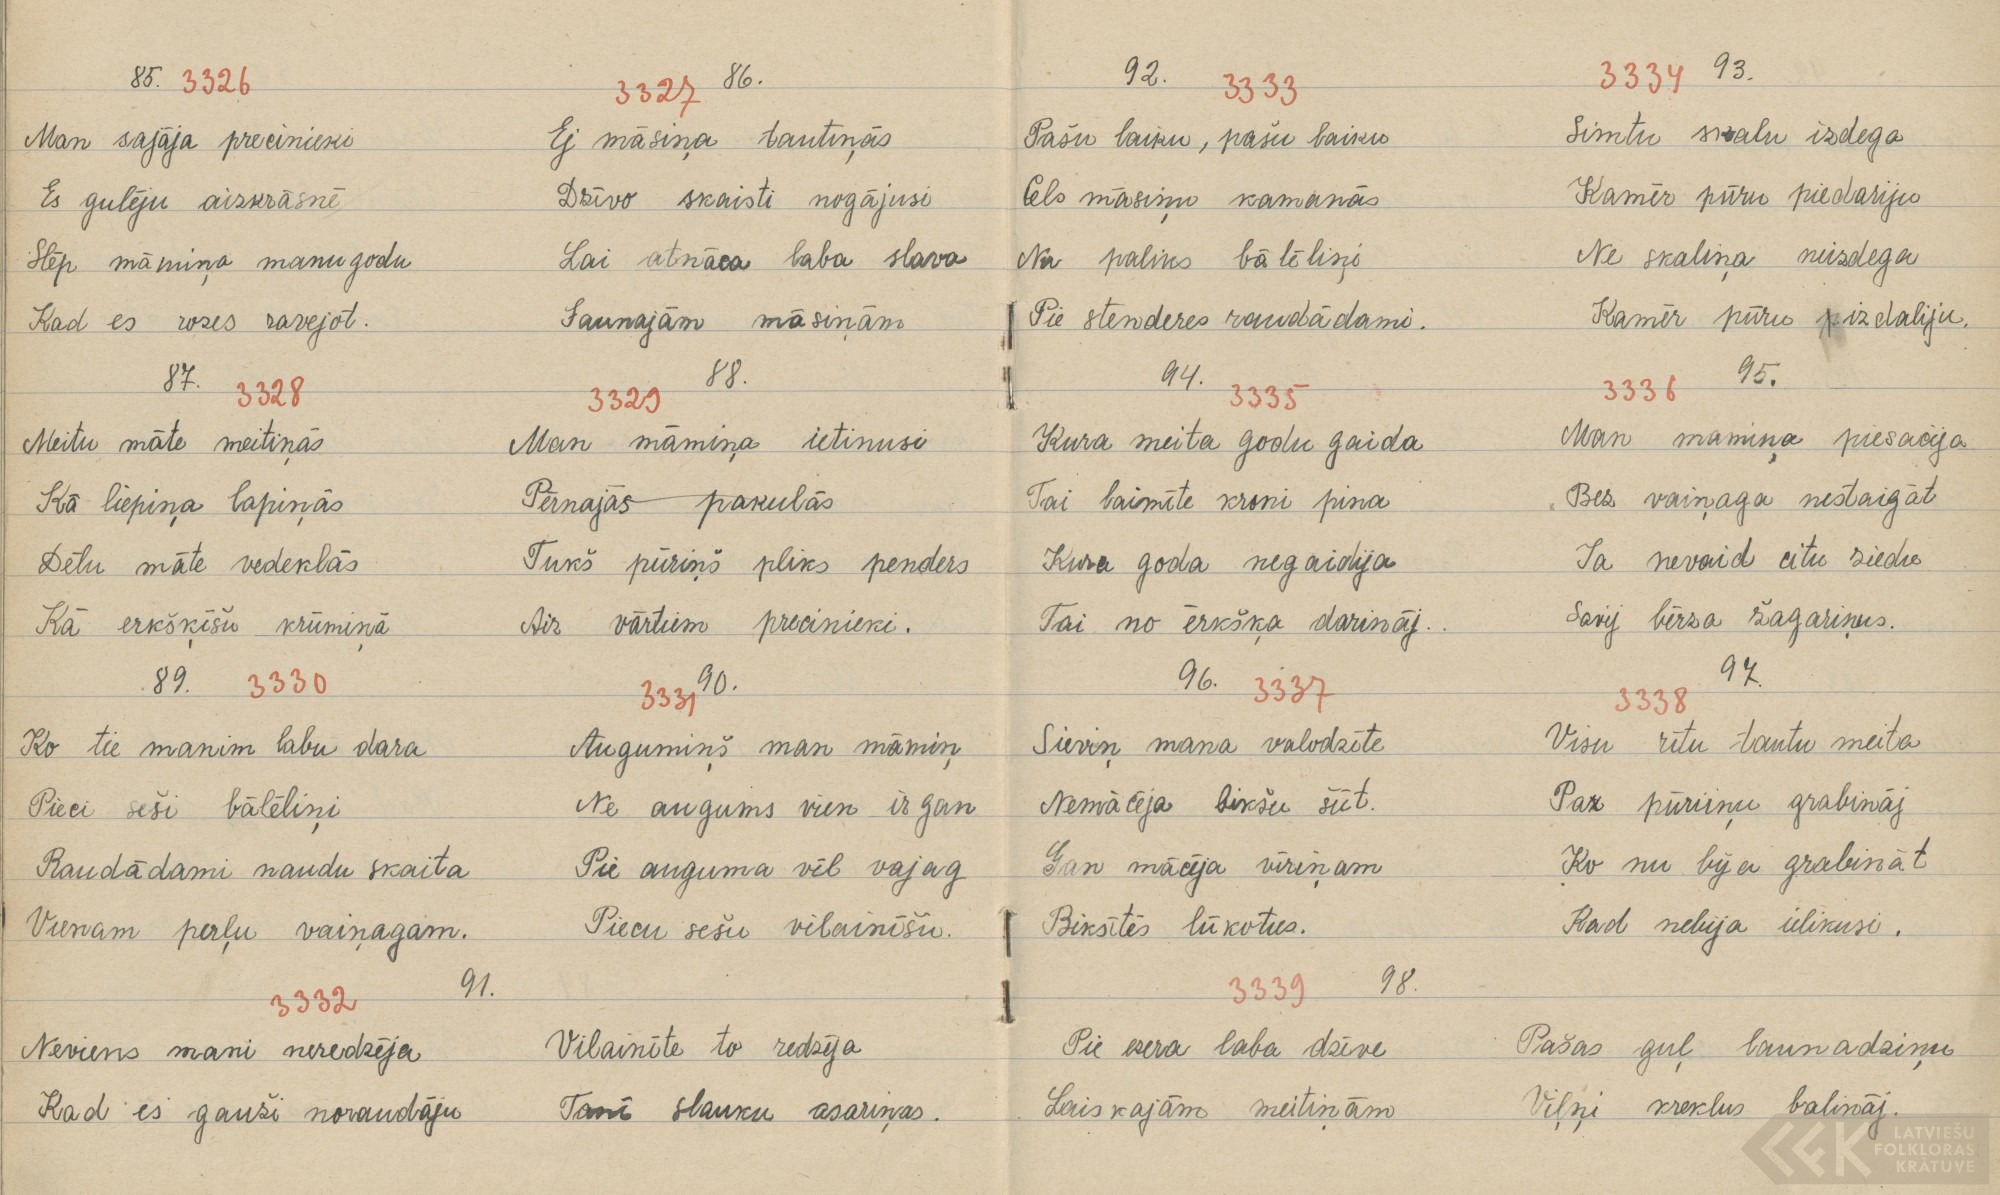 85. 3326
Man sajāja precinieki
Es gulēju aizkrāsnē
Slēp māmiņa manu godu
Kad es rozes ravejot.
3327 86.
Ej māsiņa tautiņās
Dzīvo skaisti nogājusi
Lai atnāca laba slava
Jaunajām māsiņām
87. 3328
Meitu māte meitiņās
Kā liepiņa lapiņās
Dēlu māte vedeklās
Kā erkšķīšu krūmiņā
3329 88.
Man māmiņa ietinusi
Pērnajās pakulās
Tukš pūriņš pliks penders
Aiz vārtiem precinieki.
89. 3330
Ko tie manim labu dara
Pieci seši bālēliņi
Raudādami naudu skaita
Vienam perļu vaiņagam.
3331 90.
Augumiņš man māmiņ
Ne augums vien ir gan
Pie auguma vēl vajag
Piecu sešu vilainīšu.
3332 91.
Neviens mani neredzēja
Kad es gauži noraudāju
Vilainīte to redzēja
Tanī slauku asariņas.
92. 3333
Pašu laiku, pašu laiku
Cels māsiņu kamanās
Nu paliks bālēliņi
Pie stenderes raudādami.
3334 93.
Simtu skalu izdega
Kamēr pūru piedariju
Ne skaliņa neizdega
Kamēr pūru izdaliju.
94. 3335
Kura meita godu gaida
Tai laimīte kroni pina
Kura goda negaidija
Tai no ērkšķa darināj..
3336 95.
Man mamiņa piesacija
Bez vaiņaga nestaigāt
Ja nevaid citu ziedu
Savij bērza žagariņus.
96. 3337
Sieviņ mana valodzīte
Nemācēja bikšu šūt.
Gan mācēja vīriņam
Biksītēs lūkotus.
3338 97.
Visu rītu tautu meita
Pax pūriiņu grabināj
Ko nu bija grabināt
Kad nebija ielikusi.
3339 98.
Pie ezera laba dzīve
Laiskajām meitiņām
Pašas guļ launadziņu
Viļņi kreklus balināj.
LATVIEŠU
FOLKLORAS
KRĀTUVE